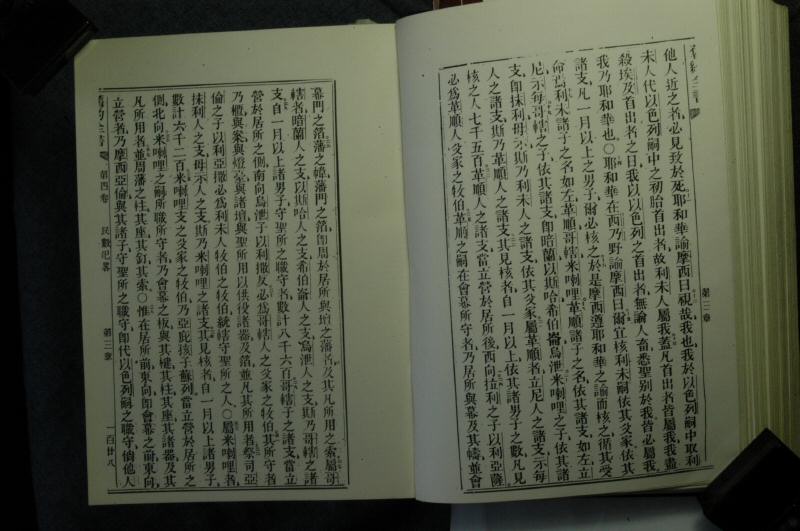 舊約全書 第三章
他人近之者必見致於死耶和華諭摩西曰視哉我也我於以色列嗣中取利
未人代以色列嗣中之初胎首出者故利未人屬我蓋凡首出者皆屬我我盡
殺埃及首出者之日我以以色列之首出者無論人畜悉聖别於我皆必屬我
我乃耶和華也〇耶和華在西乃野諭摩西曰爾宜核利未嗣依其父家依其
諸支凡一月以上之男子爾必核之於是摩西遵耶和華之諭而核之循其受
命焉利未諸子之名如左革順哥轄米喇哩革順諸子之名依其諸支如左立
尼示每哥轄之子依其諸支卽暗蘭以斯哈希伯崙烏泄米喇哩之子依其諸
支卽抹利母示斯乃利未人之諸支依其父家屬革順者立尼人之諸支示每
人之諸支斯乃革順人之諸支其見核者自一月以上依其諸男子之數凡見
核之人七千五百革順人之諸支當立營於居所後西向拉利之子以利亞薩
必爲革順人父家之牧伯革順之嗣在會幕所守者乃居所與幕及其幬並會
幕門之箔藩之幃藩門之箔卽周於居所與壇之藩者及其凡所用之索屬哥
轄者暗蘭人之支以斯哈人之支希伯崙人之支烏泄人之支斯乃哥轄之諸
支自一月以上諸男子守聖所之職守者數計八千六百哥轄子之諸支當立
營於居所之側南向烏泄子以利撒反必爲哥轄人之父家之牧伯其所守者
乃櫃與案與燈臺與諸壇與聖所用以供役諸器及箔並凡其所用者祭司亞
倫之子以利亞撒必爲利未人牧伯之牧伯統轄守聖所之人〇屬米喇哩者
抹利人之支母示人之支斯乃米喇哩之諸支其見核者自一月以上諸男子
數計六千二百米喇哩支之父家之牧伯乃亞庇孩子蘇列當立營於居所之
側北向米喇哩之嗣所職所守者乃會幕之板與其楗其柱其座其諸器及其
凡所用者並周藩之柱其座其釘其索〇惟在居所前東向卽會幕之前東向
立營者乃摩西亞倫與其諸子守聖所之職守卽代以色列嗣之職守倘他人
舊約全書 第四卷 民數紀畧 第三章 一百廿八